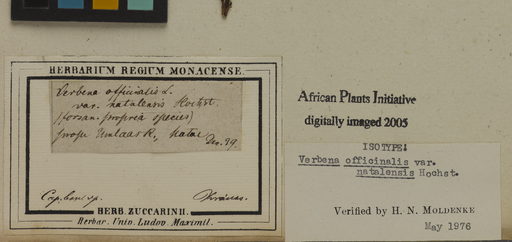 HERBARIUM REGIUM MONACENSE.
Verbena officinalis L.
var. natalensis Hochst.
(forsan propria species)
prope Umlaas R., Natal
Dec. 39.
Cap. bon. sp. Krauss.
HERB. ZUCCARINII.
Herbar. Univ. Ludov. Maximil.
African Plants Initiative
digitally imaged 2005
ISOTYPE:
Verbena officinalis var.
natalensis Hochst.
Verified by H. N. MOLDENKE
May 1976